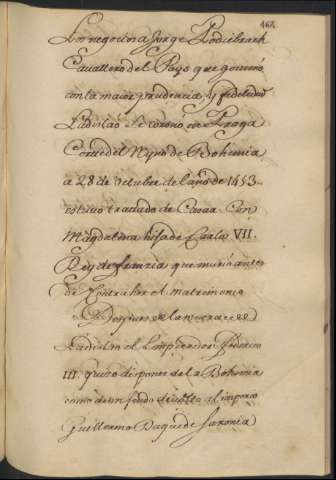 467
la negocina Jorge Podiebrach
Cauallero del Pays que gouernó
con la maior prudencia, y fidelidad
Ladislao se coronó en Praga
Corte del Reyno de Bohemia
a 28 de octubre del año de 1453
estuuo tratado de Casar Con
Magdalena hija de Carlos VII.
Rey de francia que murió antes
de Contraher el matrimonio
Despues de la muerte de
Ladislao el Emperador Federico
III. quiso disponer de la Bohemia
como de un feudo debuelto al imperio
Guillermo Duque de Saxonia